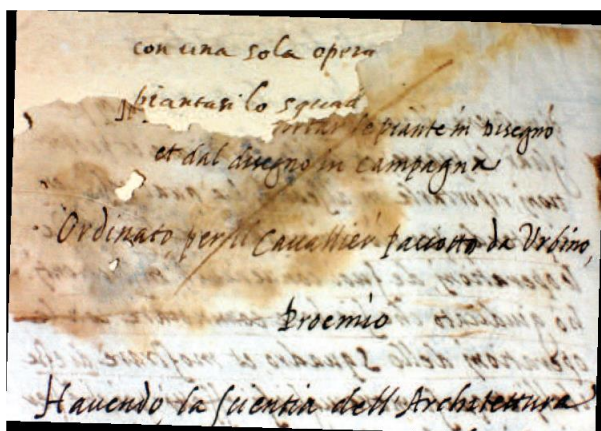 con una sola opera
piantasi lo squad
le piante in disegno
et dal disegno in campagna
Ordinato per il Cavallier Paccotto da Urbino,
Proemio
Havendo la scientia dell Architettura